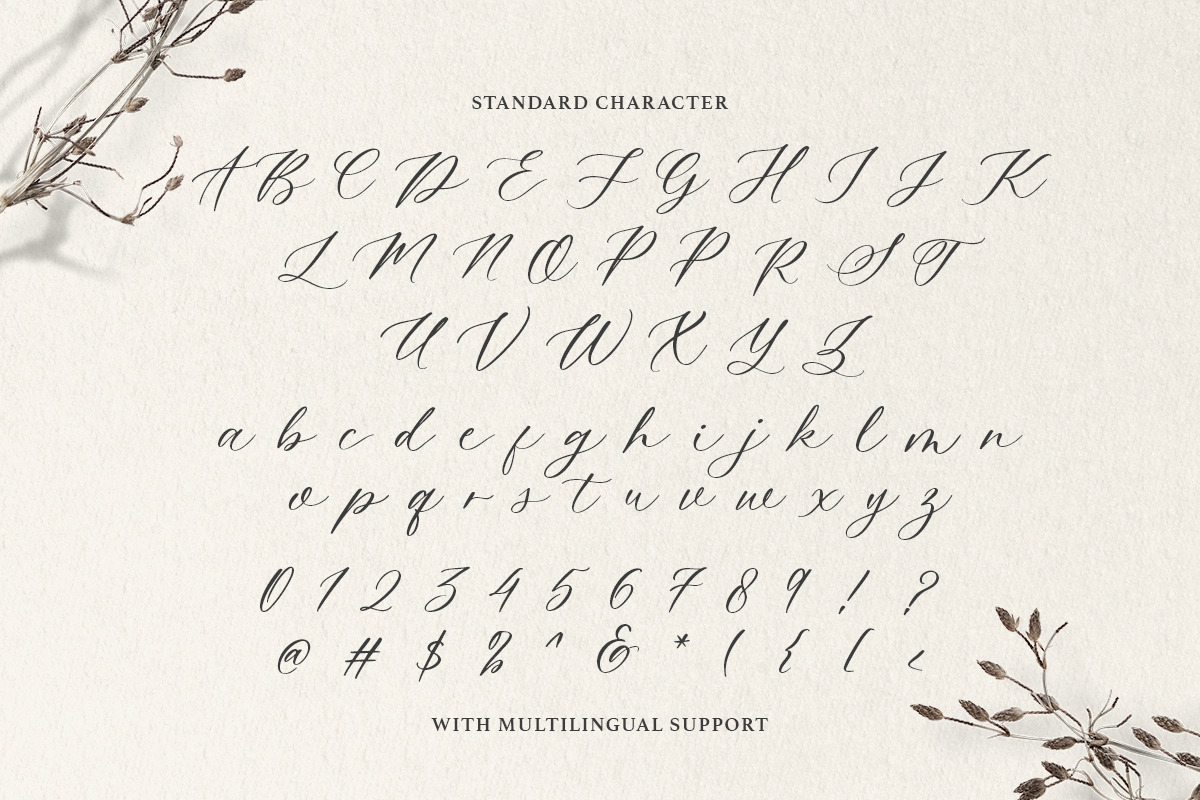 STANDARD CHARACTER
A B C D E F G H I J K
L M N O P P R S T
U V W X Y Z
a b c d e f g h i j k l m n
o p q r s t u v w x y z
0 1 2 3 4 5 6 7 8 9 ! ?
@ # $ % ^ & * ( { [ <
WITH MULTILINGUAL SUPPORT